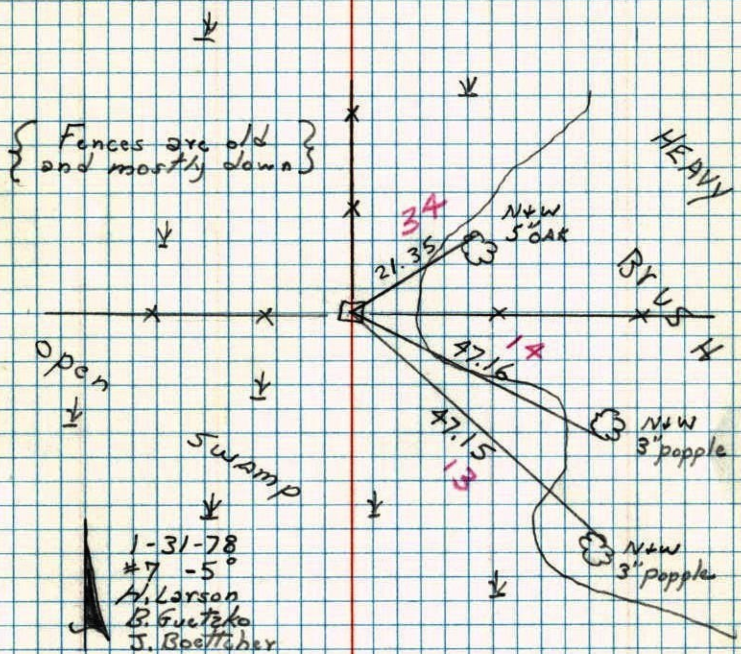 { Fences are old
and mostly down }
HEAVY
BrusH
34
21.35
N+W
5" OAK
47.16
14
N+W
3" popple
47.15
13
N+W
3" popple
Open
Swamp
1-31-78
#7 -5°
H. Larson
B. Guetzko
J. Boettcher